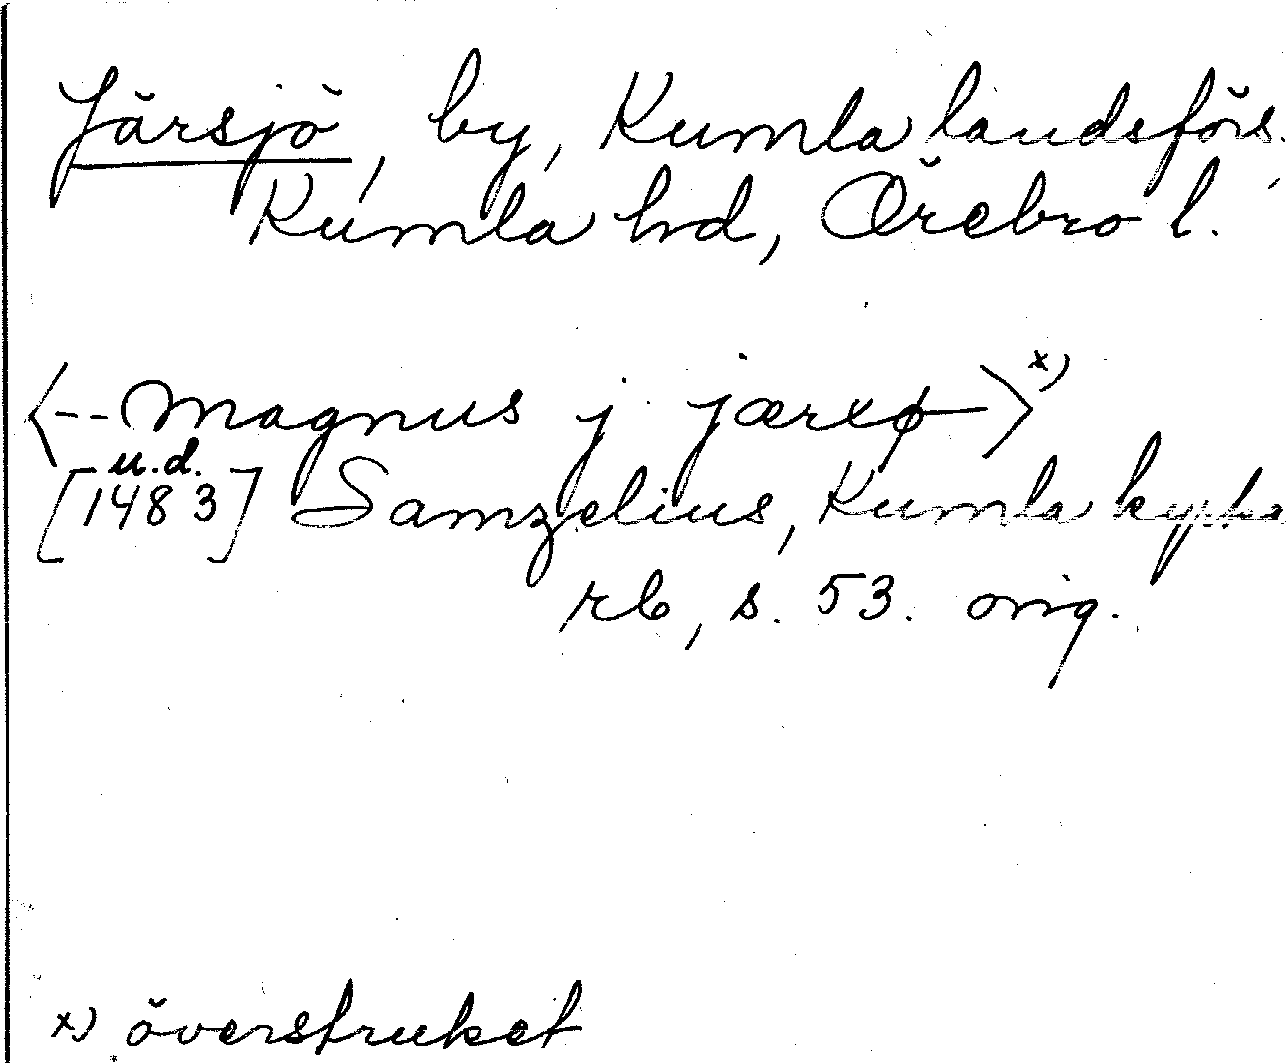 Järsjö, by, Kumla landsförs.,
Kumla hd, Örebro l.
<-- magnus j jærxø—> x)
u.d.
[1483] Samzelius, Kumla kyrka
rb, s. 53. orig.
x) överstruket